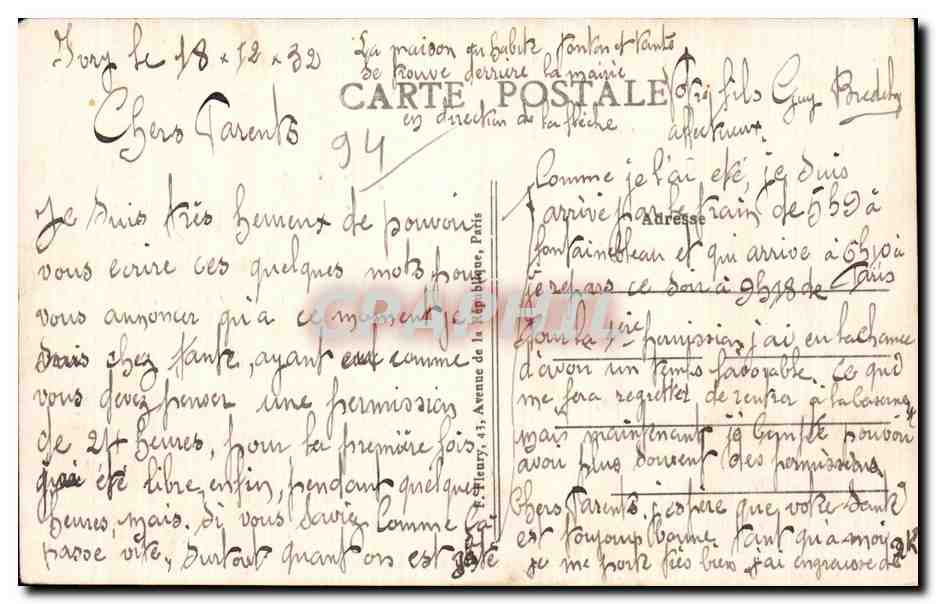 Ivry le 18 x 12 x 32
Chers Parents
94
Je suis très heureux de pouvoir
vous écrire ces quelques mots pour
vous annoncer qu'à ce moment je
suis chez tante, ayant eu comme
vous devez penser une permission
de 24 heures, pour la première fois
j'ai été libre enfin, pendant quelques
heures, mais. si vous saviez comme ça
passe vite, surtout quant on est
La maison qu'habite, tonton et tante
se trouve derrière la mairie
CARTE POSTALE
en direction de la flèche
Votre fils Guy
affectueux
E. Fleury, 43, Avenue de la République, Paris
Comme je l'ai été, je suis
arrivé par le train de 5h9 à
Adresse
Fontainebleau et qui arrive à 6h10 à
Paris
je repars ce soir à 9h18 de
Pour la 1ère permission j'ai eu la chance
d'avoir un temps favorable. Ce qui
me fera regretter de rentrer à la caserne
mais maintenant je compte pouvoir
avoir plus souvent des permissions
Chers Parents. j'espère que votre santé
est toujours bonne tant qu'à moi
je me porte très bien j'ai engraissé de 2K
CARPHIL